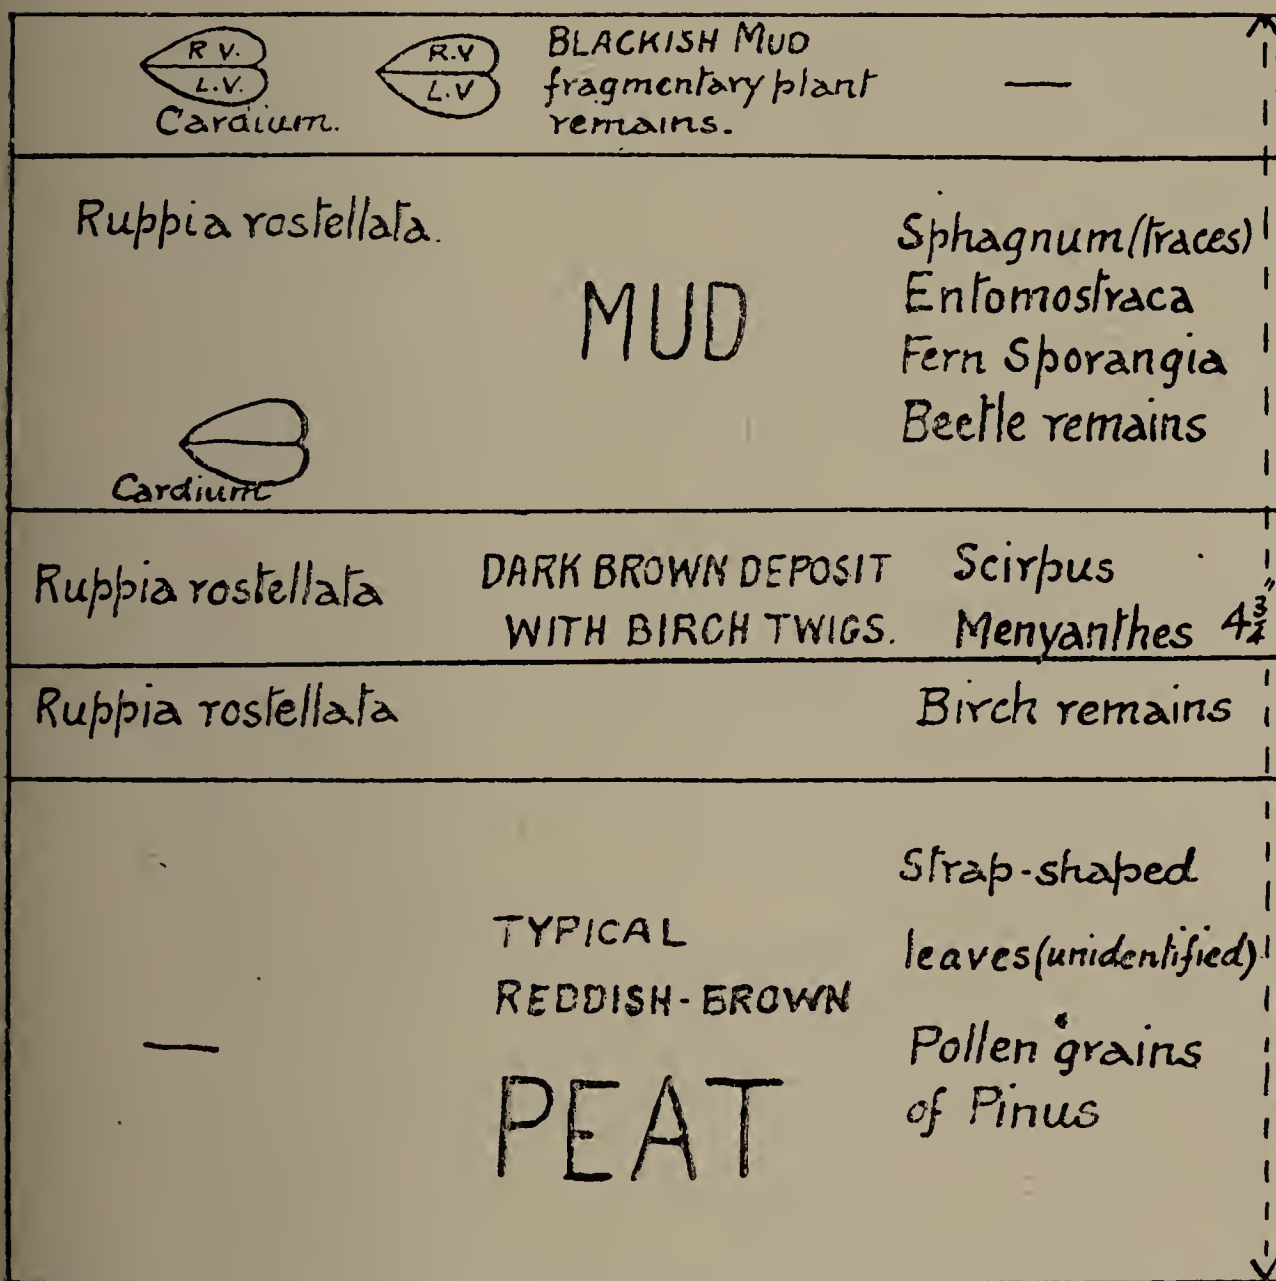 R V.
L.V.
Cardium.
R.V
L.V
BLACKISH MUD
fragmentary plant
remains.
—
Ruppia rostellata.
MUD
Sphagnum (traces)
Entomostraca
Fern Sporangia
Beetle remains
Cardium
Ruppia rostellata
DARK BROWN DEPOSIT
WITH BIRCH TWIGS.
Scirpus
Menyanthes
4¾"
Ruppia rostellata
Birch remains
—
TYPICAL
REDDISH-BROWN
PEAT
Strap-shaped
leaves (unidentified)
Pollen grains
of Pinus